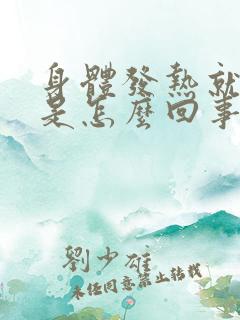 身體發熱就
是怎麼回事
劉少雄
未經同意禁止轉載